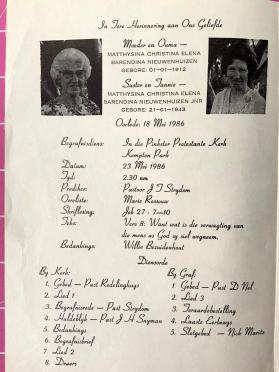 In Tere Herinnering aan Ons Geliefde
Moeder en Ouma —
MATTHYSINA CHRISTINA ELENA
BARENDINA NIEUWENHUIZEN
GEBORE: 01—01—1912
Suster en Tannie —
MATTHYSINA CHRISTINA ELENA
BARENDINA NIEUWENHUIZEN JNR
GEBORE: 21—01—1943
Oorlede: 18 Mei 1986
Begrafnisdiens: In die Pinkster Protestante Kerk
Kempton Park
Datum: 23 Mei 1986
Tyd: 2.30 nm
Prediker: Pastoor J T Strydom
Orreliste: Marie Rossouw
Skriflesing: Job 27 : 7—10
Teks: Vers 8: Want wat is die verwagting van
die mens as God sy siel wegneem.
Bedankings: Willie Bezuidenhout
Diensorde
By Kerk:
1. Gebed — Past Redelinghuys
2. Lied 1
3. Begrafnisrede — Past Strydom
4. Huldeblyk — Past J H Snyman
5. Bedankings
6. Begrafnisbrief
7. Lied 2
8. Draers
By Graf:
1. Gebed — Past D Nel
2. Lied 3
3. Teraardebestelling
4. Laaste Eerbewys
5. Slotgebed — Nick Maritz